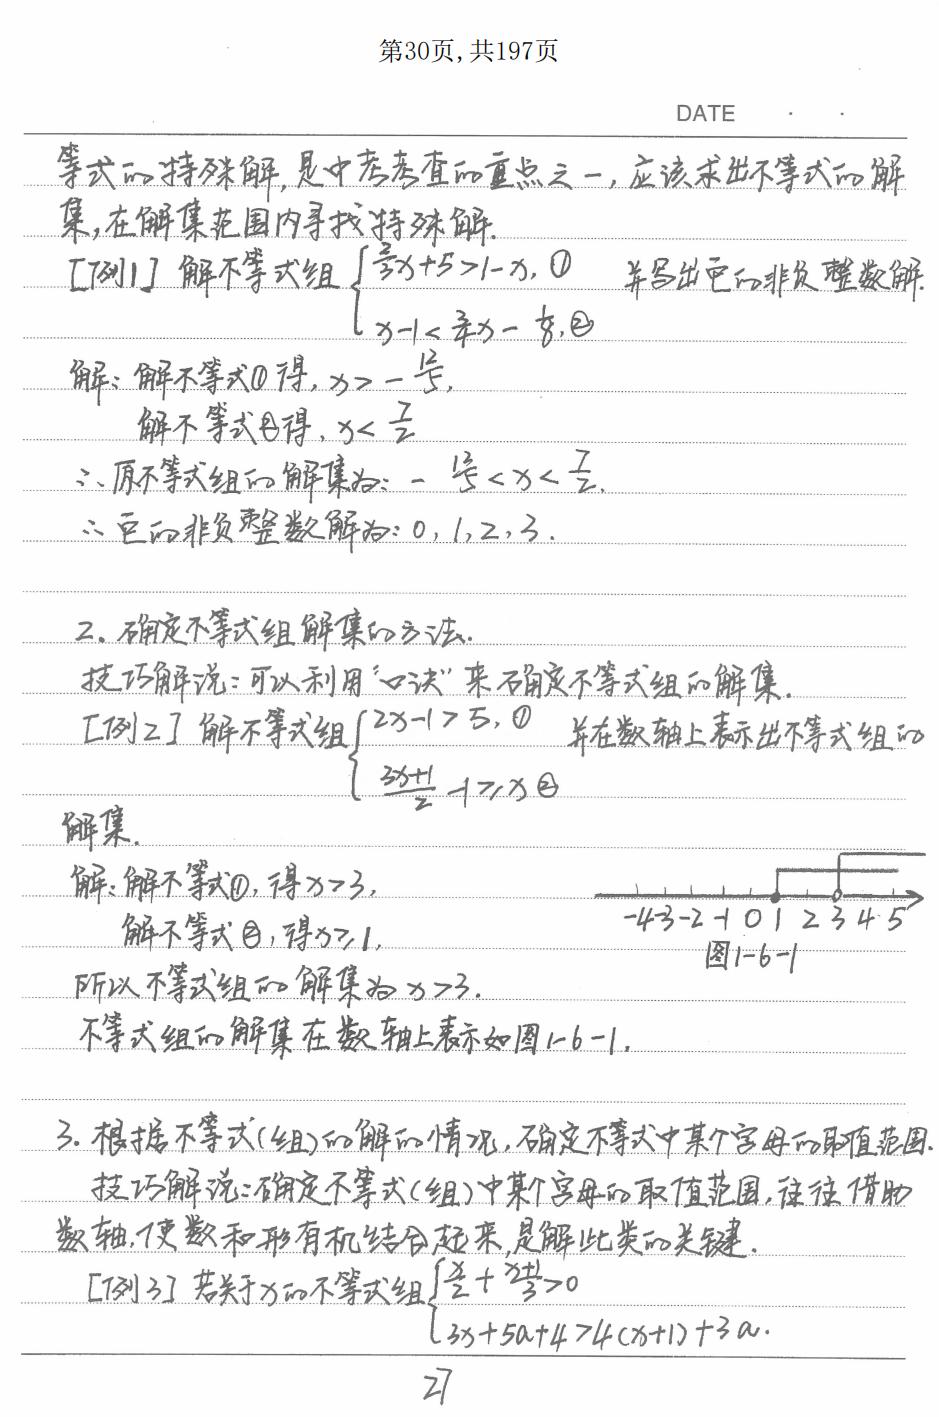 第30页,共197页
DATE · ·
等式的特殊解,是中考考查的重点之一,应该求出不等式的解
集,在解集范围内寻找特殊解.
[例1] 解不等式组 { 2/3x+5>1-x,① 并写出它的非负整数解.
x-1<3/4x-1/8,②
解:解不等式①得,x>-12/5,
解不等式②得,x<7/2
∴原不等式组的解集为:-12/5<x<7/2.
∴它的非负整数解为:0,1,2,3.
2.确定不等式组解集的方法.
技巧解说:可以利用“口诀”来确定不等式组的解集.
[例2] 解不等式组 { 2x-1>5,① 并在数轴上表示出不等式组的
(3x+1)/2-1≥x②
解集.
解:解不等式①,得x>3,
解不等式②,得x≥1,
-4-3-2-1 0 1 2 3 4 5
图1-6-1
所以不等式组的解集为x>3.
不等式组的解集在数轴上表示如图1-6-1.
3.根据不等式(组)的解的情况,确定不等式中某个字母的取值范围.
技巧解说:确定不等式(组)中某个字母的取值范围,往往借助
数轴,使数和形有机结合起来,是解此类的关键.
[例3] 若关于x的不等式组 { x/2+(x+1)/3>0
3x+5a+4>4(x+1)+3a.
27